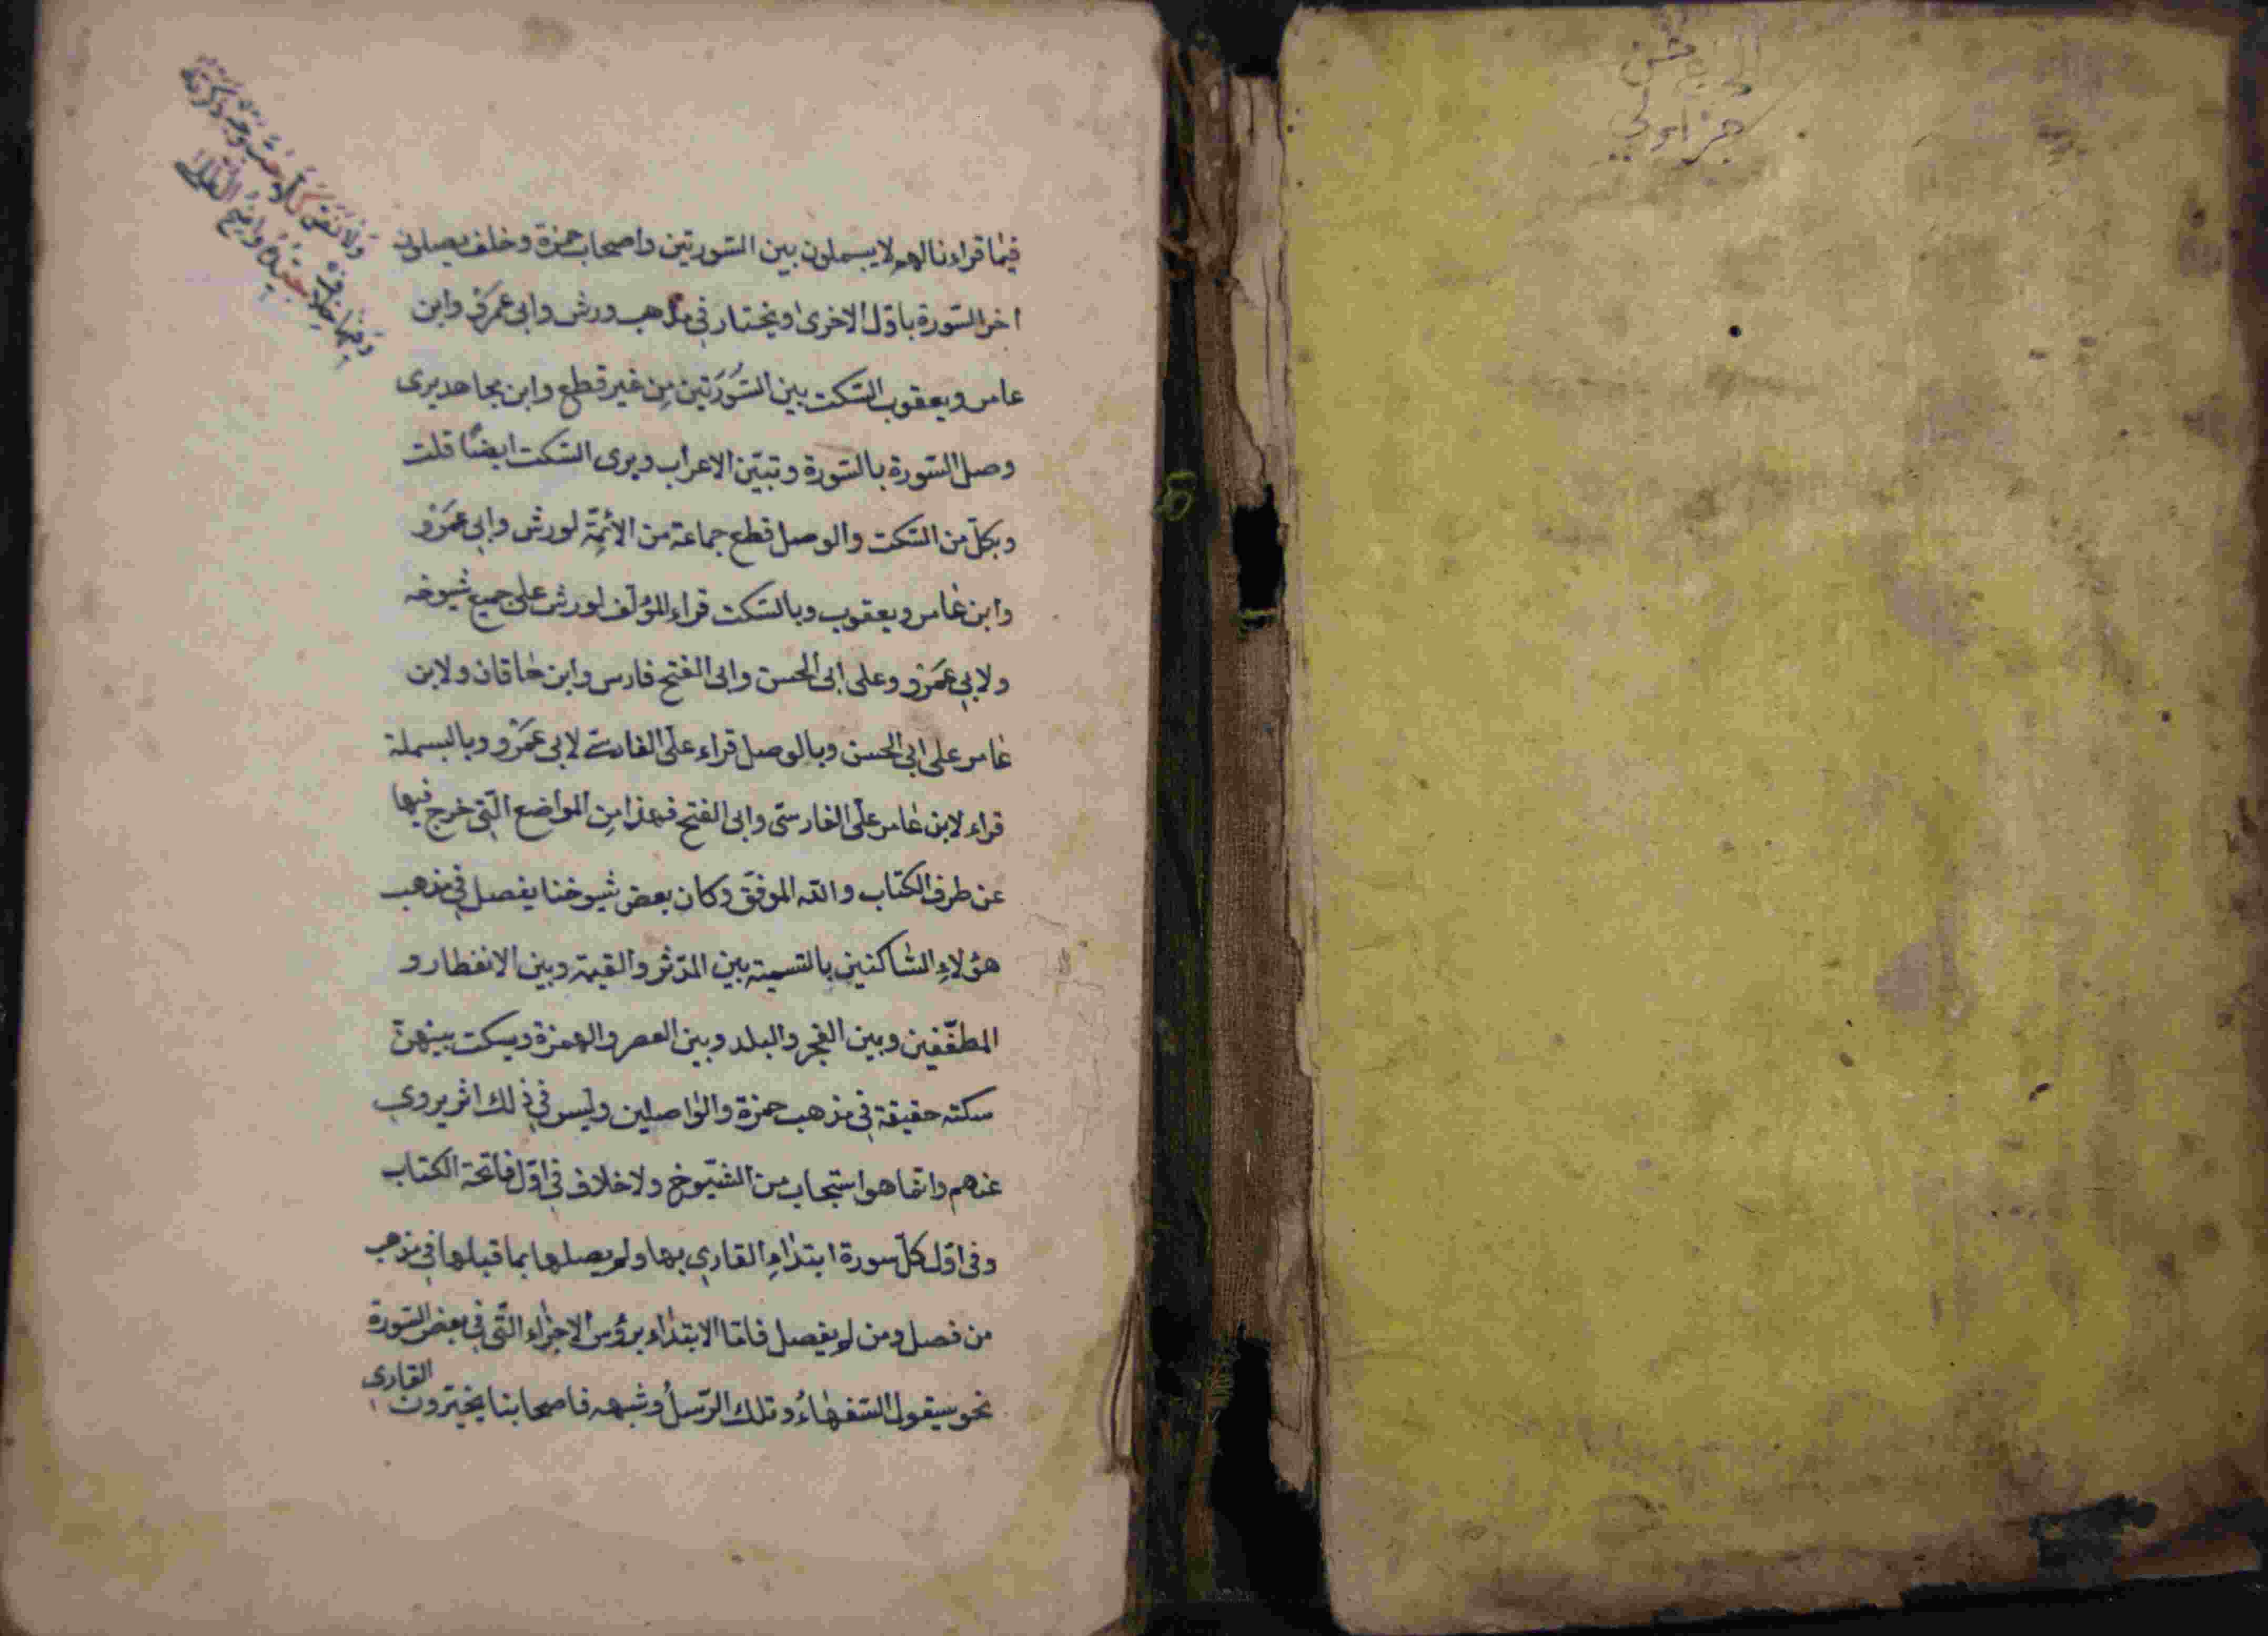 فيما قراءنا لهم لا يبسملون بين السّورتين واصحاب حمزة وخلف يصلون
اخر السّورة باوّل الاخرى ويختار في مذهب ورش وابي عمرو وابن
عامر ويعقوب السّكت بين السُّوَرَتين مِن غير قطع وابن مجاهد يرى
وصل السّورة بالسّورة وتبيّن الاعراب ويرى السّكت ايضًا قلت
وبكلّ من السّكت والوصل قطع جماعة من الائِمّة لورش وابي عَمَرْو
وابن عامر ويعقوب وبالسّكت قراء المؤلّف لورش على جميع شيوخه
ولابي عَمَرْو وعلى ابى الحسن وابى الفتح فارس وابن خاقان ولابن
عامر على ابى الحسن وبالوصل قراء على الفارسىّ لابى عَمَرْو وبالبسملة
قراء لابن عامر على الفارسىّ وابى الفتح فهذا مِن المواضع الّتي خرج فيها
عن طرق الكتاب والله الموفّق وكان بعض شيوخنا يفصل في مذهب
هؤلاءِ السّاكتين بالتسمية بين المدّثّر والقيمة وبين الانفطار و
المطفّفين وبين الفجر والبلد وبين العصر والهمزة ويسكت بينهنّ
سكته حقيقة في مذهب حمزة والواصلين وليس في ذلك اثر يروى
عنهم وانّما هو استحباب من الشّيوخ ولا خلاف في اوّل فاتحة الكتاب
وفى اوّل كلّ سورة ابتداءِ القارى بها ولم يصلها بما قبلها في مذهب
من فصل ومن لم يفصل فامّا الابتداء برؤس الاجزاء الّتي في بعض السّورة
نحو سيقول السّفهاءُ وتلك الرّسلُ وشبهه فاصحابنا يخيّرون القارى
الحاج حسن